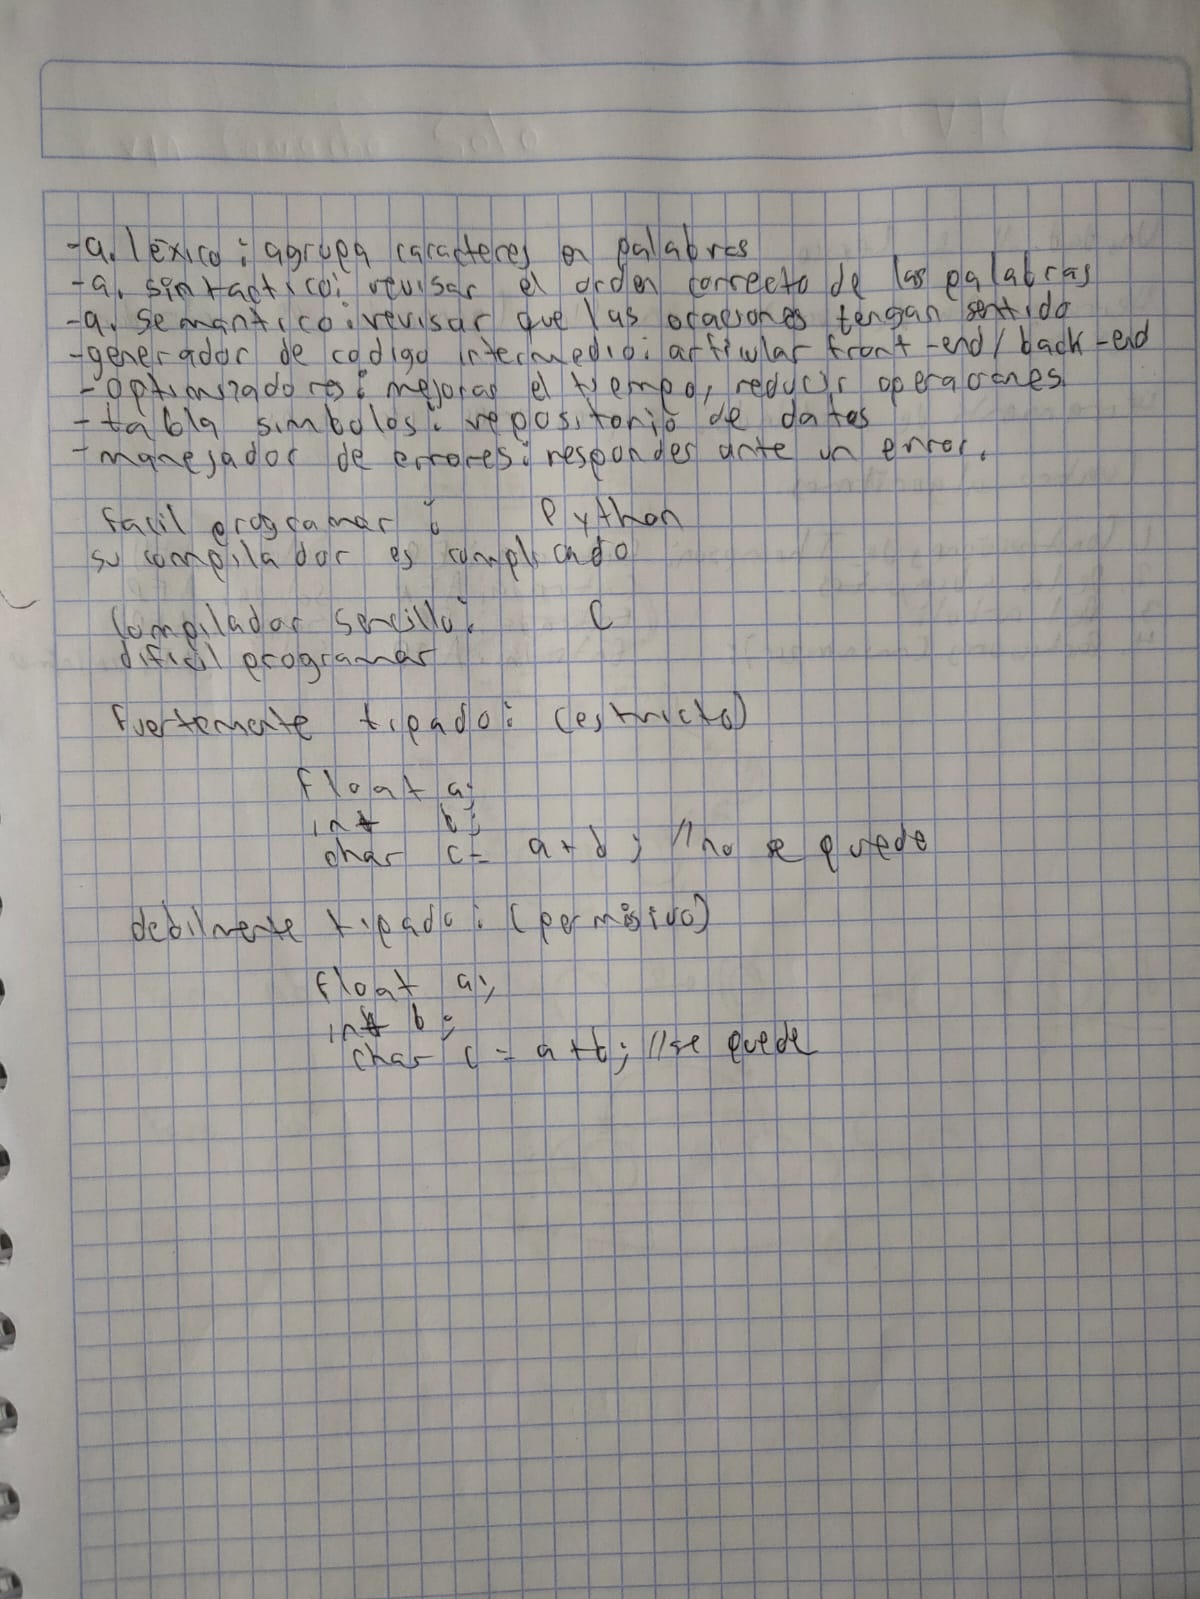 -a. léxico: agrupa caracteres en palabras
-a. sintactico: revisar el orden correcto de las palabras
-a. semantico: revisar que las oraciones tengan sentido
-generador de codigo intermedio: articular front-end/back-end
-optimizadores: mejorar el tiempo, reducir operaciones
-tabla simbolos: repositorio de datos
-manejador de errores: responder ante un error.
facil programar: Python
su compilador es complicado
Compilador sencillo: C
dificil programar
fuertemente tipado: (estricto)
float a;
int b;
char c = a + b; //no se puede
debilmente tipado: (permisivo)
float a;
int b;
char c = a + b; //se puede